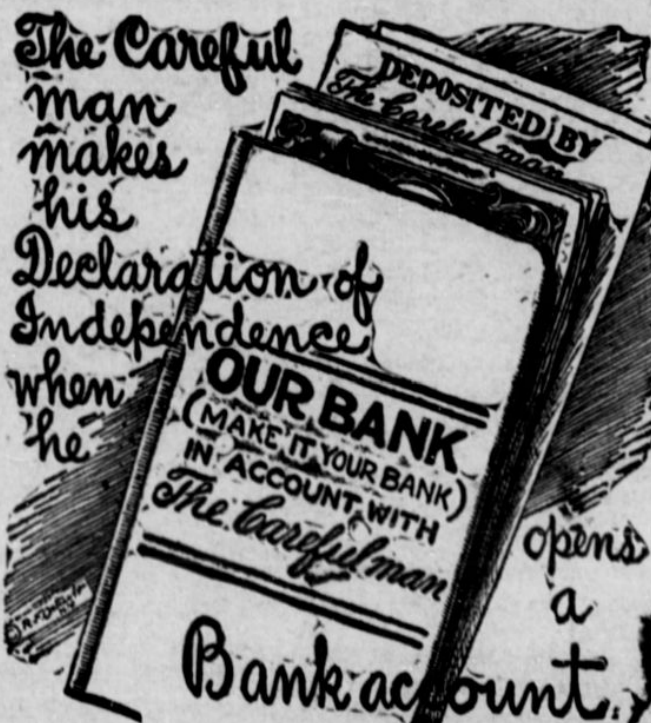 The Careful
man
makes
his
Declaration of
Independence
when
he
opens
a
Bank account.
DEPOSITED BY
The Careful man
OUR BANK
(MAKE IT YOUR BANK)
IN ACCOUNT WITH
The Careful man